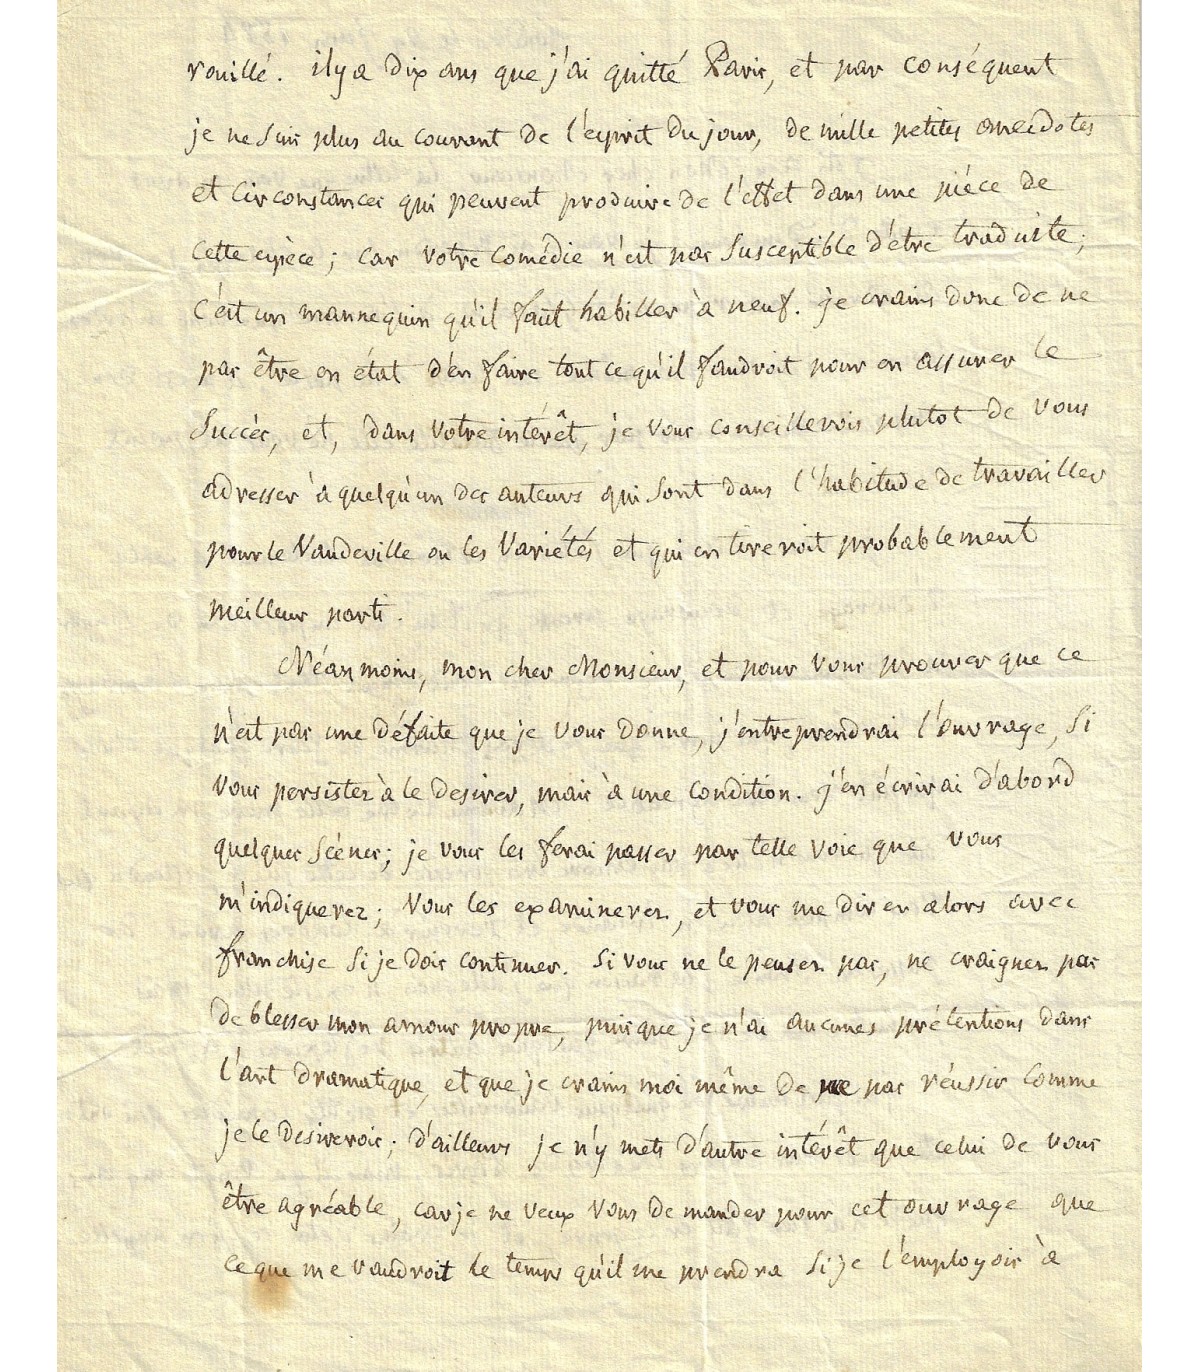 rouillé. il y a dix ans que j'ai quitté Paris, et par conséquent
je ne suis plus au courant de l'esprit du jour, de mille petites anecdotes
et circonstances qui peuvent produire de l'effet dans une pièce de
cette espèce ; car votre comédie n'est pas susceptible d'être traduite ;
c'est un mannequin qu'il faut habiller à neuf. je crains donc de ne
pas être en état d'en faire tout ce qu'il faudroit pour en assurer le
succès, et, dans votre intérêt, je vous conseillerois plutot de vous
adresser à quelqu'un des auteurs qui sont dans l'habitude de travailler
pour le Vaudeville ou les Variétés et qui en tireroit probablement
meilleur parti.
Néanmoins, mon cher Monsieur, et pour vous prouver que ce
n'est pas une défaite que je vous donne, j'entreprendrai l'ouvrage, si
vous persistez à le desirer, mais à une condition. j'en écrirai d'abord
quelques scénes ; je vous les ferai passer par telle voie que vous
m'indiquerez ; vous les examinerez, et vous me direz alors avec
franchise si je dois continuer. si vous ne le pensez pas, ne craignez pas
de blesser mon amour propre, puisque je n'ai aucunes prétentions dans
l'art dramatique, et que je crains moi même de ne pas réussir comme
je le desirerois ; d'ailleurs je n'y mets d'autre intérêt que celui de vous
être agréable, car je ne veux vous demander pour cet ouvrage que
ce que me vaudroit le temps qu'il me prendra si je l'employois à